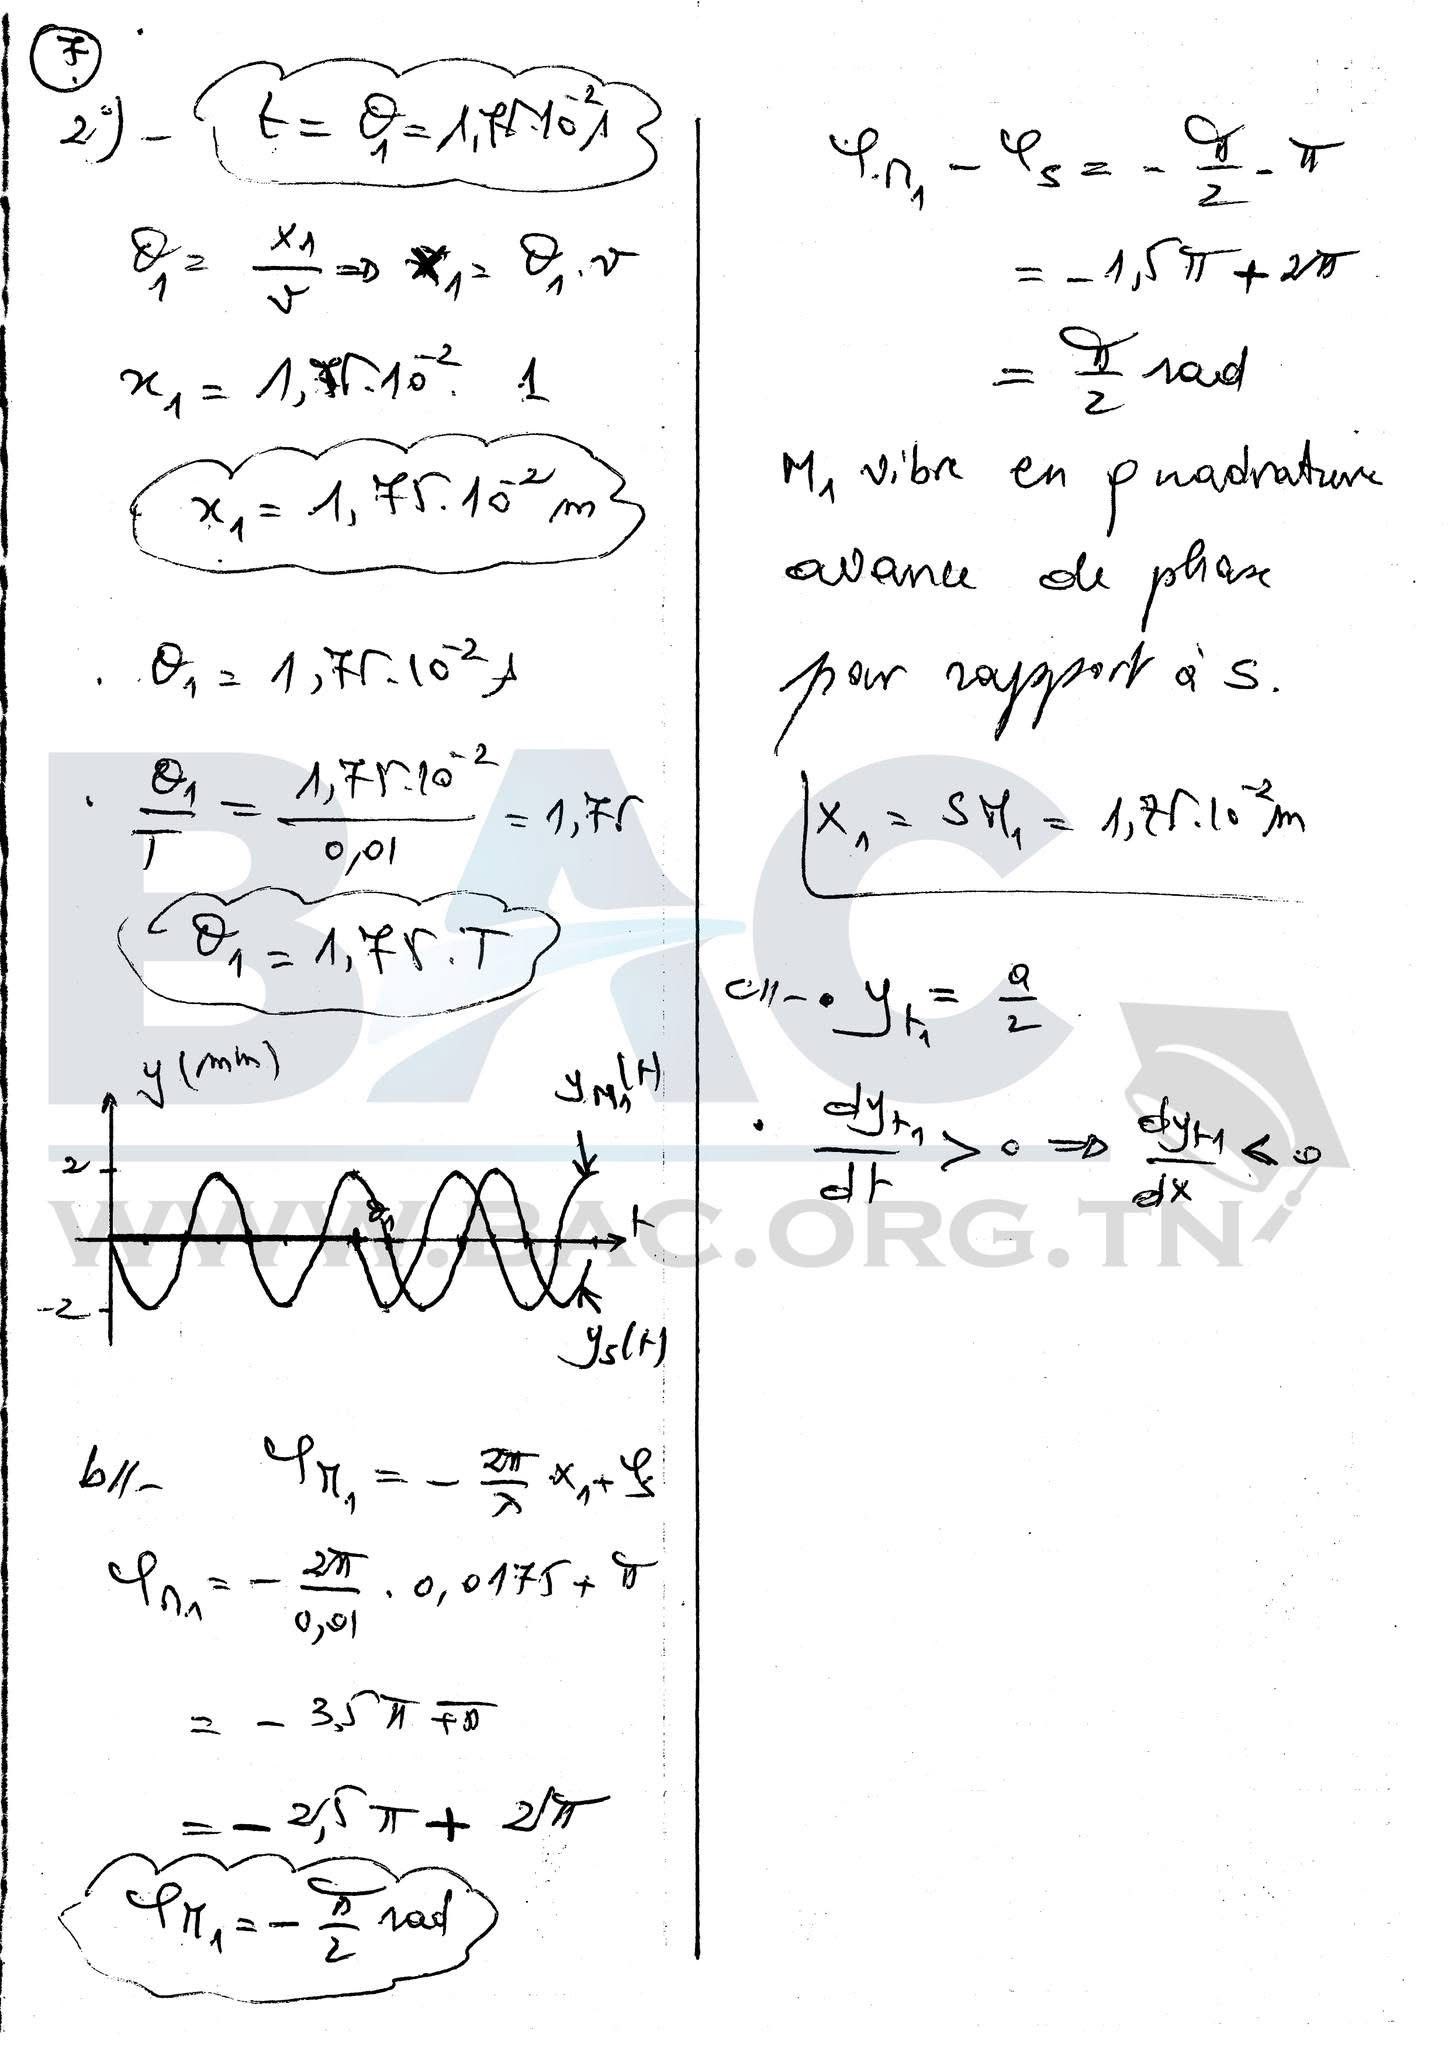 7
2°) - t = θ₁ = 1,75.10⁻² s
θ₁ = x₁/v ⇒ x₁ = θ₁ . v
x₁ = 1,75.10⁻² . 1
x₁ = 1,75.10⁻² m
. θ₁ = 1,75.10⁻² s
. θ₁/T = 1,75.10⁻²/0,01 = 1,75
θ₁ = 1,75.T
y(mm)
y_M₁(t)
2
t
-2
y_s(t)
b//- φ_M₁ = - 2π/λ . x₁ + φ_s
φ_M₁ = - 2π/0,01 . 0,0175 + π
= - 3,5π + π
= - 2,5π + 2π
φ_M₁ = - π/2 rad
φ_M₁ - φ_s = - π/2 - π
= - 1,5π + 2π
= π/2 rad
M₁ vibre en quadrature
avance de phase
par rapport à S.
x₁ = SM₁ = 1,75.10⁻² m
c//- • y_t₁ = a/2
• dy_t₁/dt > 0 ⇒ dy_t₁/dx < 0
BAC
WWW.BAC.ORG.TN